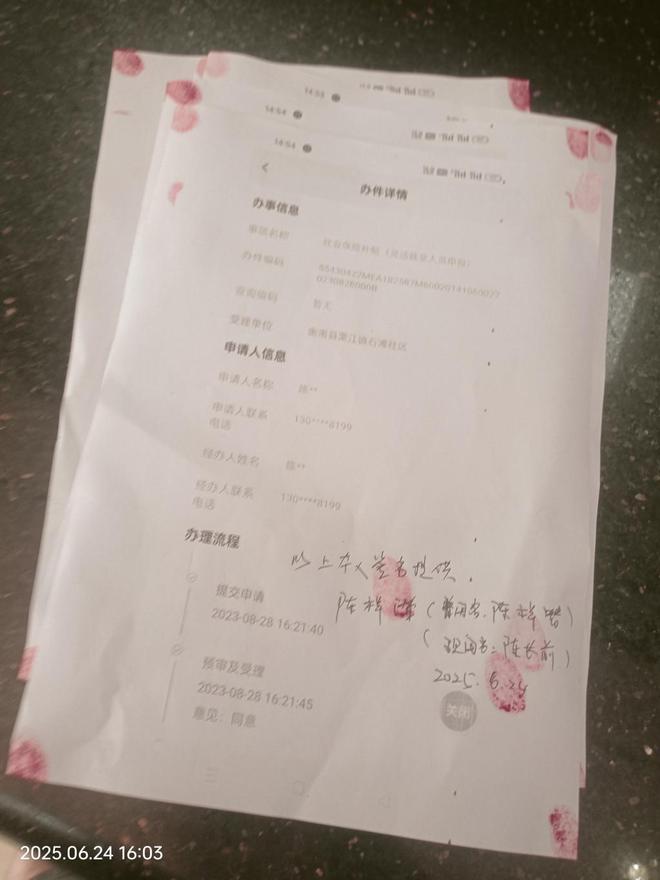 14:53
14:54
14:54
办件详情
办事信息
事项名称
社会保险补贴（灵活就业人员申报）
办件编码
查询编码
暂无
受理单位
衡南县栗江镇石滩社区
申请人信息
申请人名称
陈**
申请人联系
电话
130****8199
经办人姓名
陈**
经办人联系
电话
130****8199
办理流程
以上本人签名提供.
提交申请
2023-08-28 16:21:40
陈祥
(曾用名. 陈祥
(现用名: 陈长前)
2025. 6.24
预审及受理
2023-08-28 16:21:45
意见：同意
关闭
2025.06.24 16:03